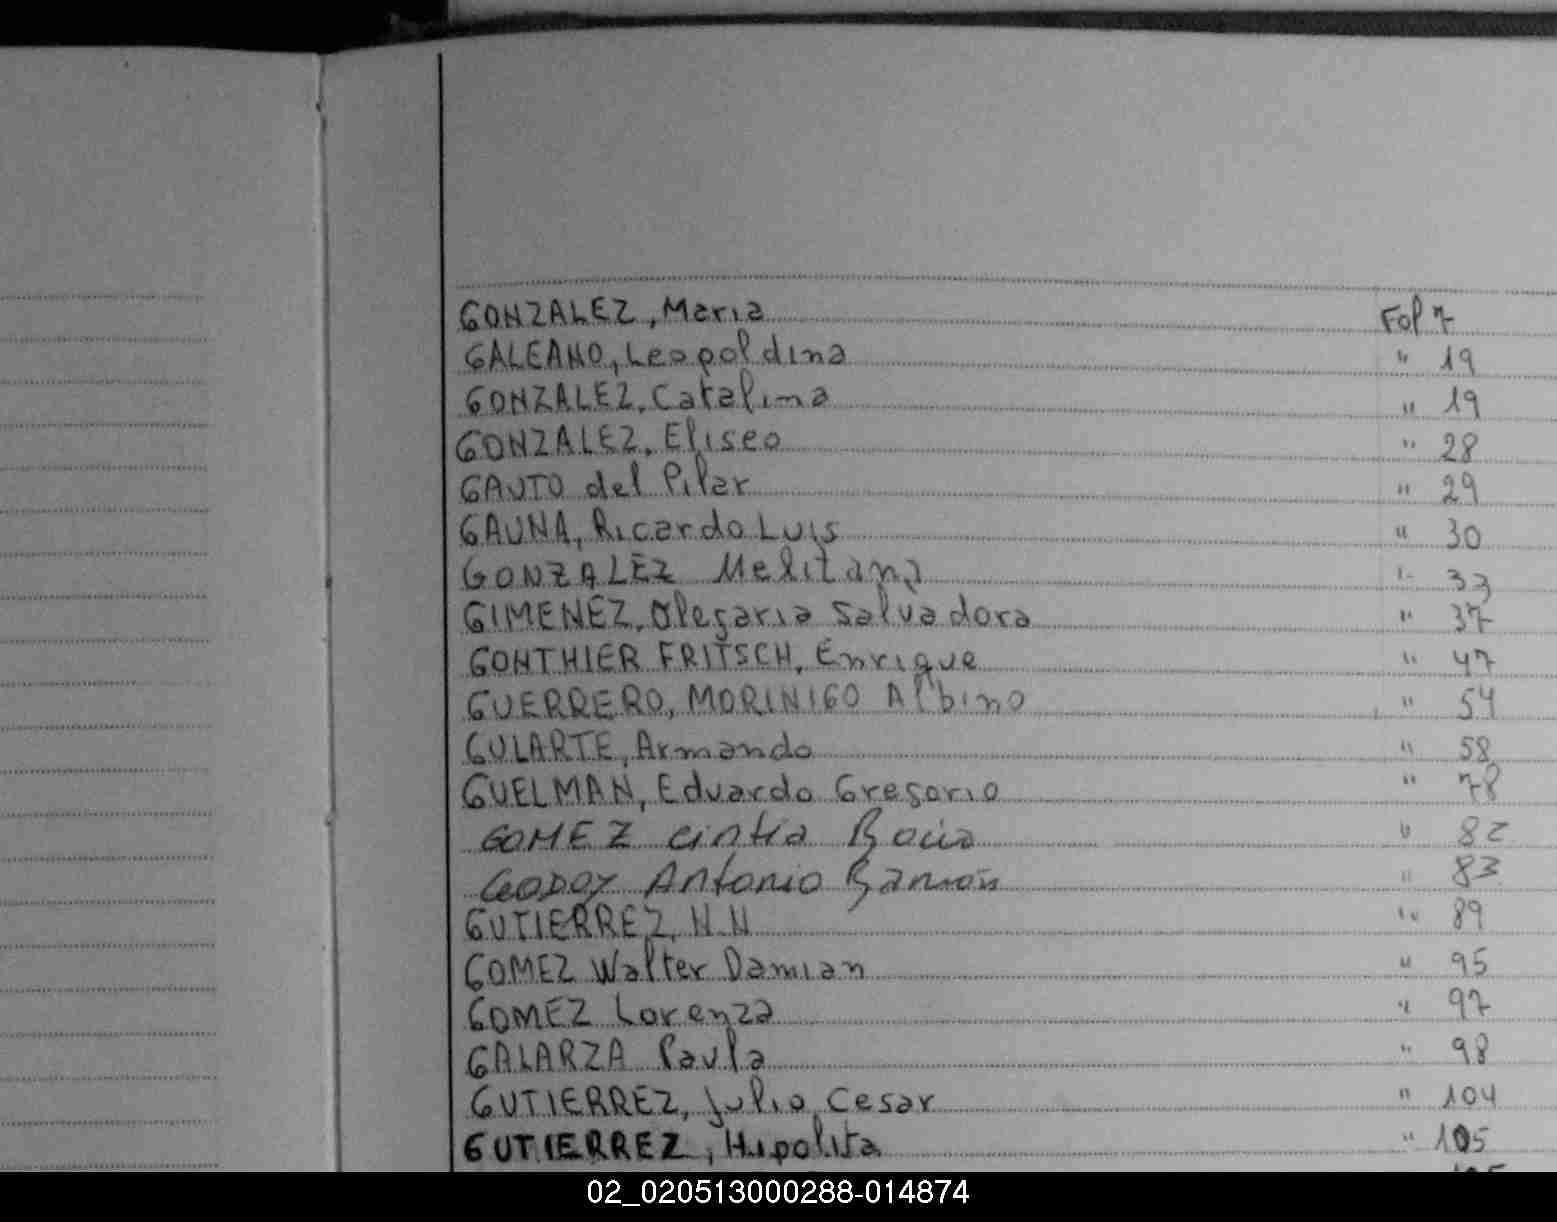 GONZALEZ, Maria Fol 7
GALEANO, Leopoldina " 19
GONZALEZ, Catalina " 19
GONZALEZ, Eliseo " 28
GAUTO del Pilar " 29
GAUNA, Ricardo Luis " 30
GONZALEZ Melitana " 33
GIMENEZ, Olegaria Salvadora " 37
GONTHIER FRITSCH, Enrique " 47
GUERRERO, MORINIGO Albino " 54
GULARTE, Armando " 58
GUELMAN, Eduardo Gregorio " 78
GOMEZ Cintia Rocio " 82
GODOY Antonio Ramón " 83
GUTIERREZ, N.N " 89
GOMEZ Walter Damian " 95
GOMEZ Lorenza " 97
GALARZA Paula " 98
GUTIERREZ, Julio Cesar " 104
GUTIERREZ, Hipolita " 105
02_020513000288-014874